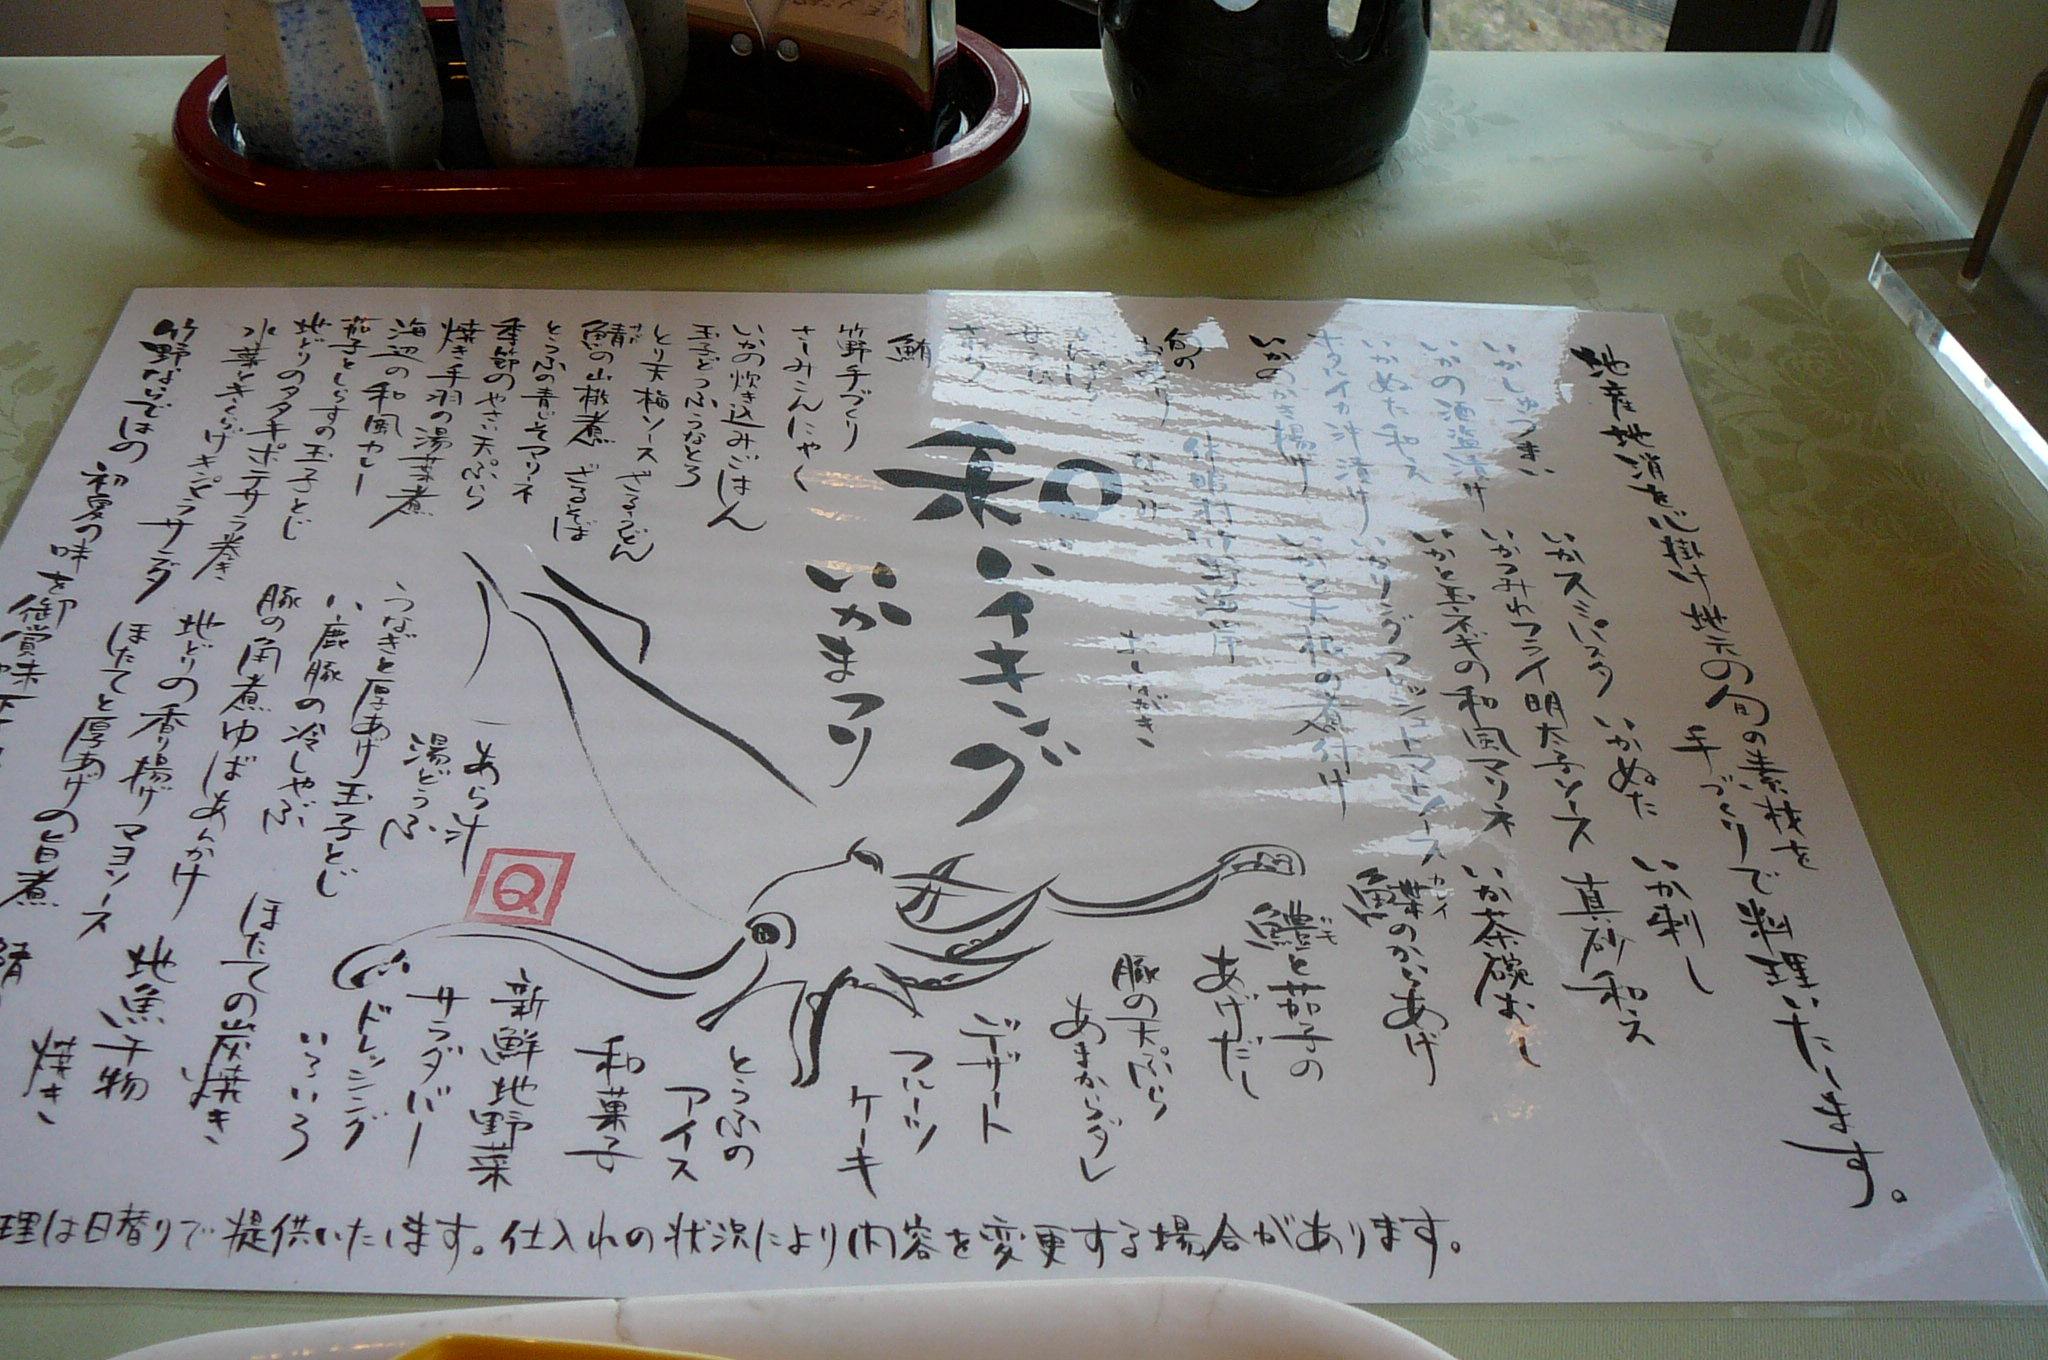 地産地消を心掛け地元の旬の素材を
手づくりで料理いたします。
いか刺し
いかぬた
真砂和え
いかつみれフライ明太子ソース
いか茶碗むし
いかと玉ネギの和風マリネ
いかしゅうまい
いかの酒盗漬け
いかぬた和え
いかと大根の煮付け
鰈のからあげ
カレイ
鱧と茄子の
ハモ
あげだし
豚の天ぷら
あまからダレ
旬の
おしながき
和バイキング
いかまつり
鮪
竹野手づくり
さしみこんにゃく
いかの炊き込みごはん
玉子どうふうなとろ
とり天梅ソース
ざるうどん
鯖の山椒煮
ざるそば
とうふの青じそマリネ
季節のやさい天ぷら
焼き手羽の湯葉煮
海辺の和風カレー
茄子としらすの玉子とじ
地どりのタタキポテサラ巻き
水菜ときくらげキムラサラダ
竹野ならではの初夏の味を御賞味下
あら汁
湯どうふ
うなぎと厚あげ玉子とじ
八鹿豚の冷しゃぶ
豚の角煮ゆばあんかけ
地どりの香り揚げマヨソース
ほたてと厚あげの旨煮
ほたての炭焼き
地魚干物
焼き
デザート
フルーツ
ケーキ
とうふの
アイス
和菓子
新鮮地野菜
サラダバー
ドレッシング
いろいろ
Q
理は日替りで提供いたします。仕入れの状況により内容を変更する場合があります。